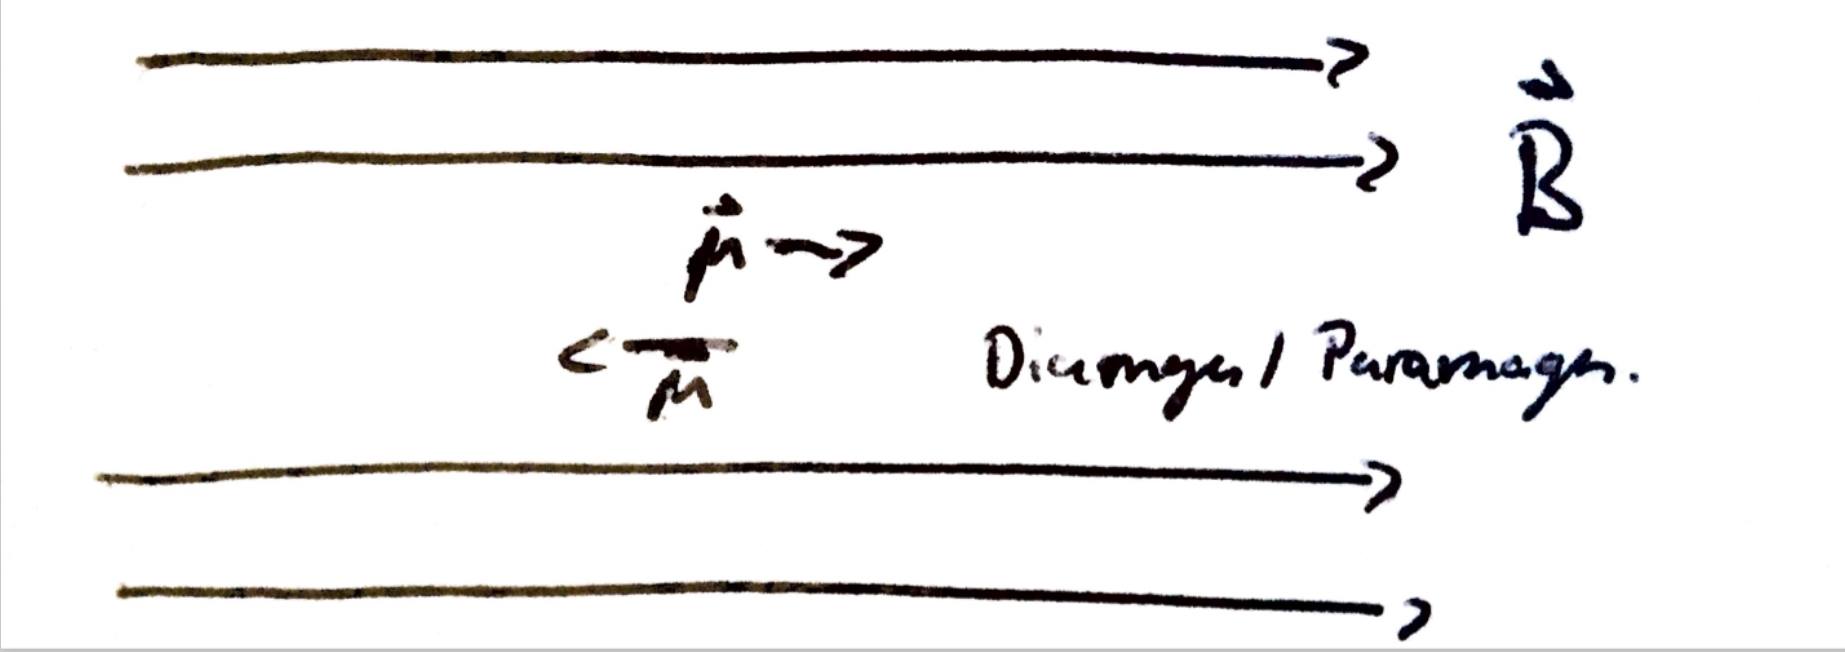 B⃗
μ⃗
μ
Diamagn / Paramagn.